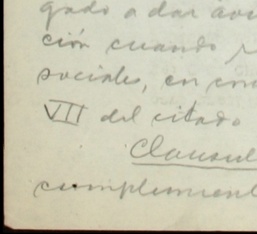 gado a dar avi
ción cuando
sociales, en con
VII del citado
Clausul
cumplimient